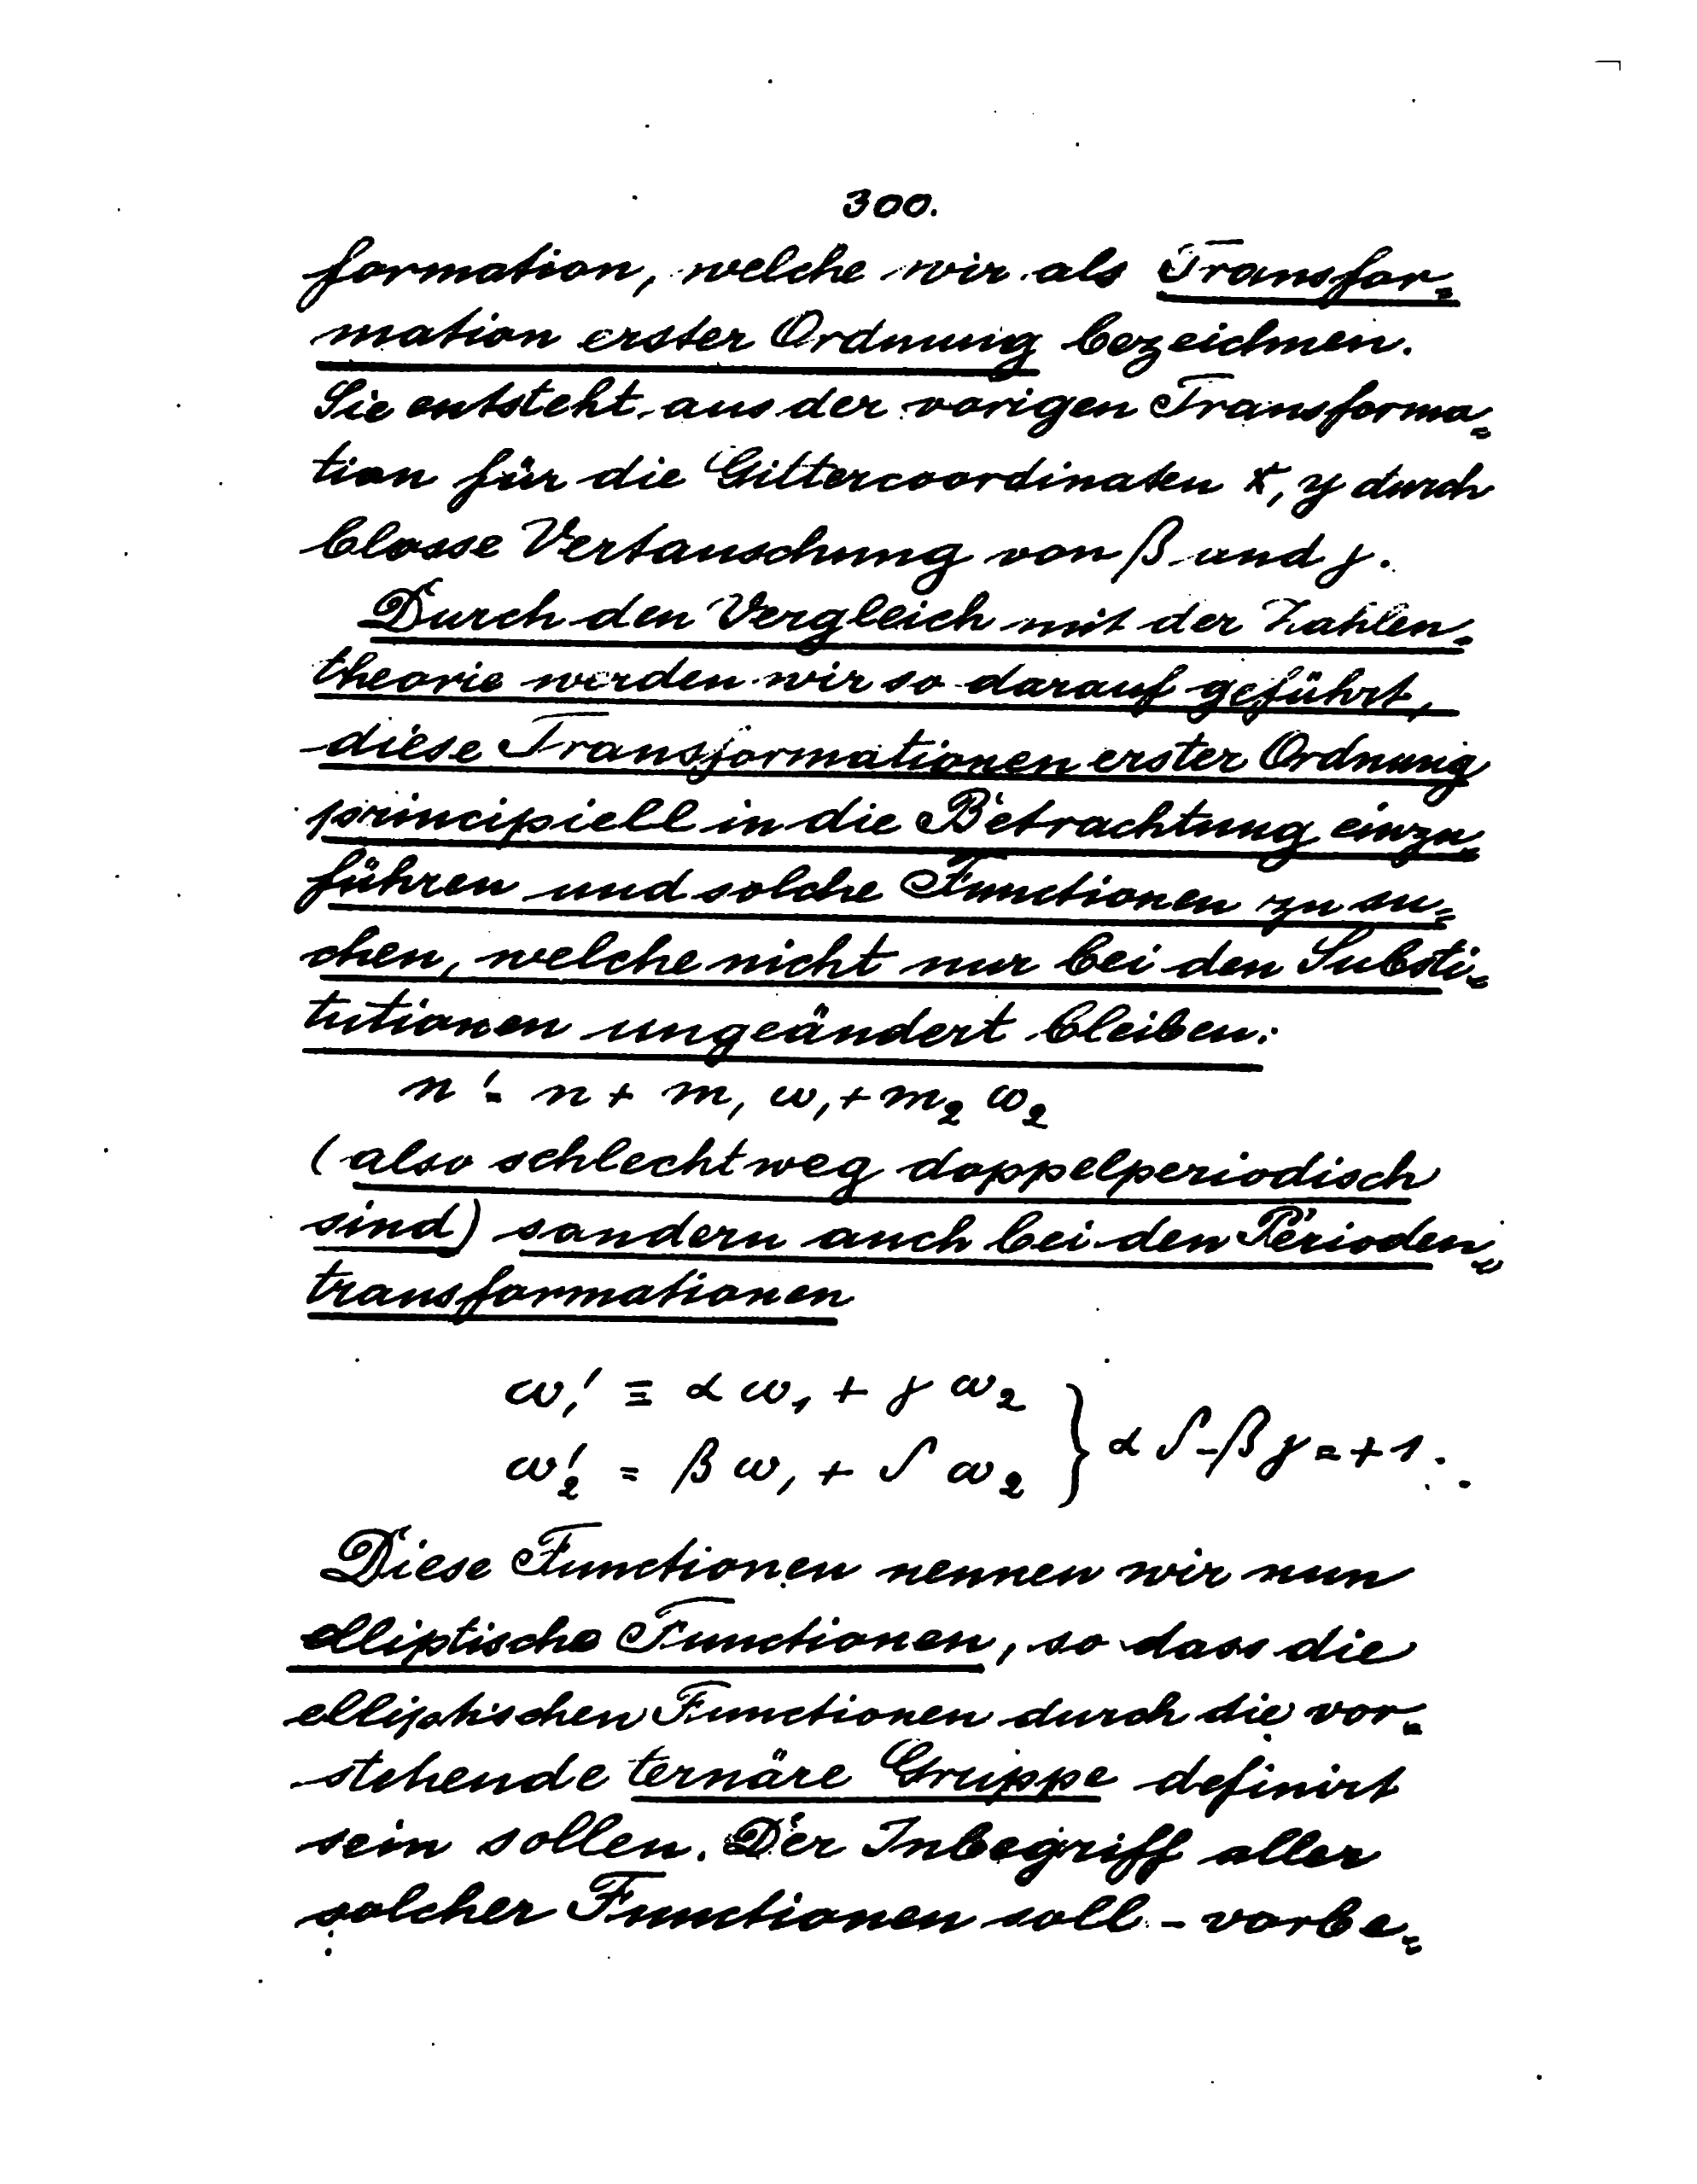 300.
formation, welche wir als Transfor=
mation erster Ordnung bezeichnen.
Sie entsteht aus der vorigen Transforma=
tion für die Gittercoordinaten x, y durch
blosse Vertauschung von β und γ.
Durch den Vergleich mit der Zahlen=
theorie werden wir so darauf geführt,
diese Transformationen erster Ordnung
principiell in die Betrachtung einzu=
führen und solche Functionen zu su=
chen, welche nicht nur bei den Substi=
tutionen ungeändert bleiben:
u' = u + m₁ ω₁ + m₂ ω₂
(also schlechtweg doppelperiodisch
sind) sondern auch bei den Perioden=
transformationen
ω₁' = α ω₁ + γ ω₂
ω₂' = β ω₁ + δ ω₂ } α δ - β γ = + 1.
Diese Functionen nennen wir nun
elliptische Functionen, so dass die
elliptischen Functionen durch die vor=
stehende ternäre Gruppe definirt
sein sollen. Der Inbegriff aller
solcher Functionen soll - vorbe=